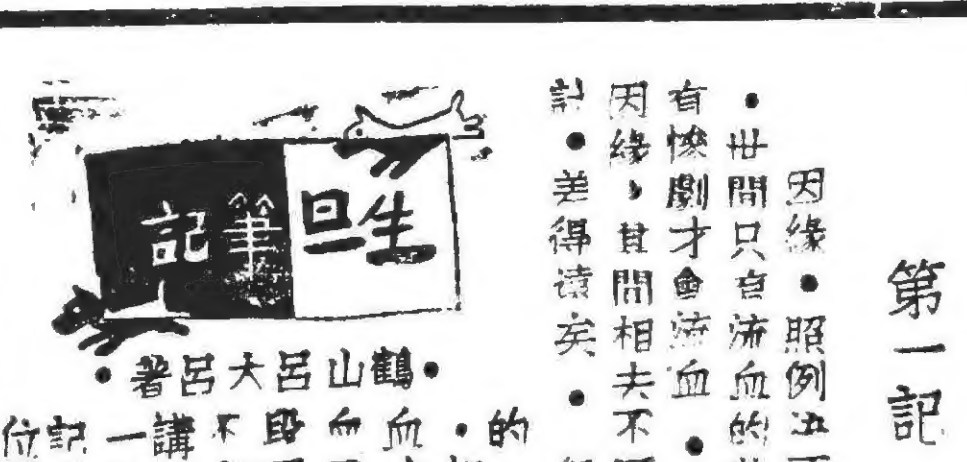 第一記
因緣•照例
•世間只有流血的
有慘劇才會流血•
因緣,其間相去不
計•差得遠矣•
生旦筆記
•鶴山呂大呂著•
的
•
血
血
段
不
講
一
記
位